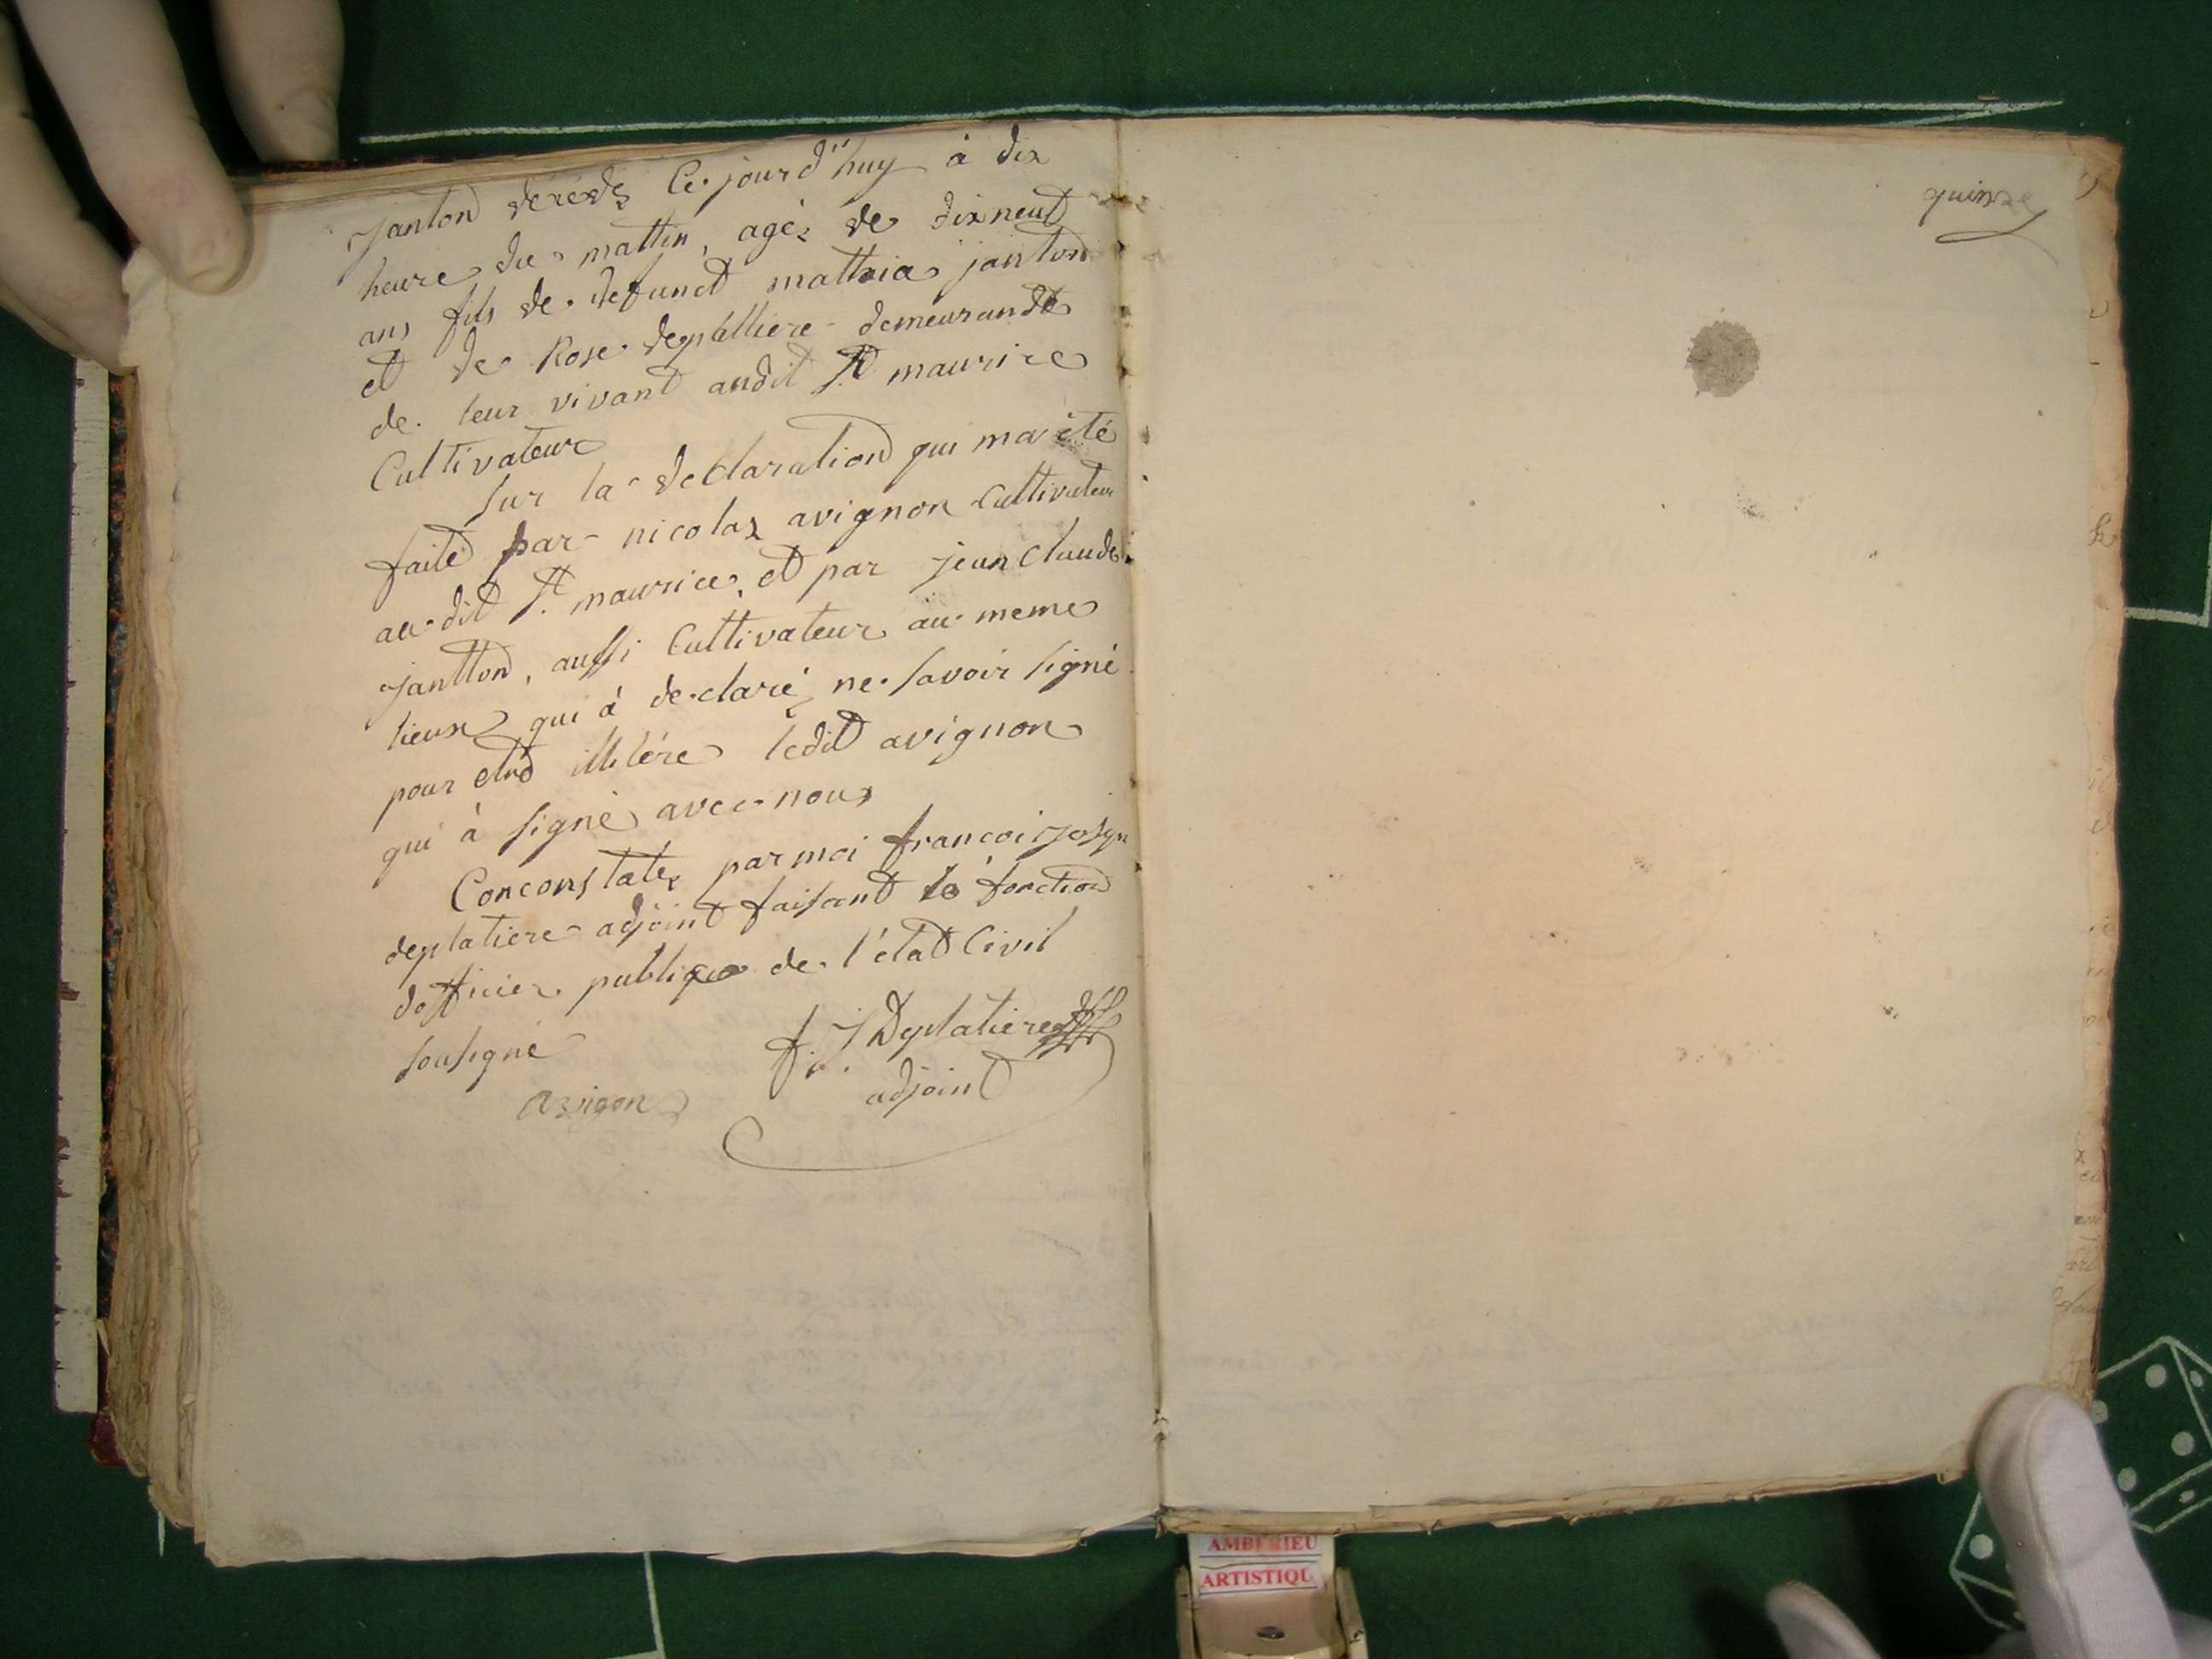 janton décédé Ce jourd'huy à dix
heure du mattin, agé de dixneuf
ans fils de defunct mathia janton
et de Rose deplattiere demeurande
de leur vivant audit St maurice
Cultivateur
sur la declaration qui ma été
faite par nicolas avignon Cultivateur
au dit St maurice, et par jean Claude
jantton, aussi Cultivateur au meme
lieux qui à declaré ne savoir signé
pour etre illitére ledit avignon
qui à signé avec nous
Conconstater par moi francoi
deplatiere adjoint faisant fonction
dofficier publique de l'état Civil
sousigné
F. J Deplatiere
avigon adjoint
quinze
AMBERIEU
ARTISTIQU